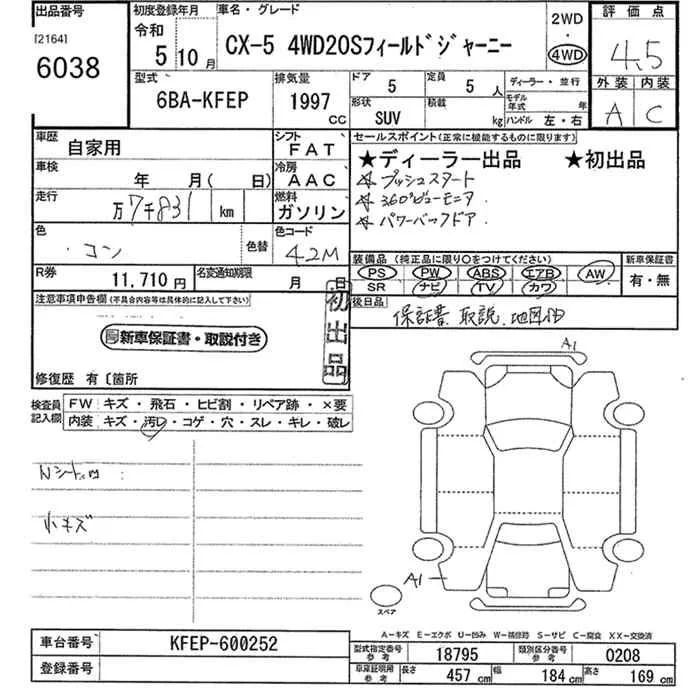 出品番号
[2164]
6038
初度登録年月
令和
5 10月
車名・グレード
CX-5 4WD20Sフィールドジャーニー
2WD
・
4WD
評価点
4.5
外装 内装
A C
型式
6BA-KFEP
排気量
1997
CC
ドア
5
定員
5 人
形状
SUV
積載
kg
ディーラー・並行
モデル年式 年
ハンドル 左・右
車歴
自家用
シフト
FAT
車検
年 月( 日)
冷房
AAC
走行
万7千831 km
燃料
ガソリン
色
コン
色替
色コード
42M
R券
11,710円
名変通知期限
月 日
セールスポイント(正常に機能するものに限ります)
★ディーラー出品 ★初出品
☆プッシュスタート
☆360°ビューモニタ.
☆パワーバックドア.
装備品(純正品に限り○をつけてください)
PS PW ABS エアB AW
SR ナビ TV カワ
新車保証書
有・無
後日品
保証書、取説、地図
注意事項申告欄(不具合内容等は具体的に記入して下さい)
新車保証書・取説付き
初出品
修復歴 有〔箇所
検査員記入欄
FW キズ・飛石・ヒビ割・リペア跡・×要
内装 キズ・汚レ・コゲ・穴・スレ・キレ・破レ
小キズ
A1
A1
スペア
A-キズ E-エクボ U-凹み W-補修跡 S-サビ C-腐食 XX-交換済
車台番号
KFEP-600252
登録番号
型式指定番号
参考
18795
類別区分番号
参考
0208
車庫証明用
参考
長さ
457 cm
幅
184 cm
高さ
169 cm